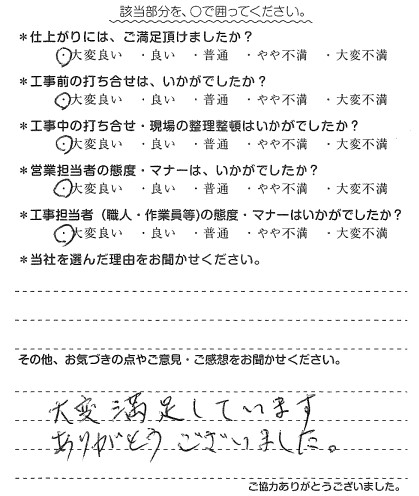 該当部分を、〇で囲ってください。
＊仕上がりには、ご満足頂けましたか？
・大変良い ・良い ・普通 ・やや不満 ・大変不満
＊工事前の打ち合せは、いかがでしたか？
・大変良い ・良い ・普通 ・やや不満 ・大変不満
＊工事中の打ち合せ・現場の整理整頓はいかがでしたか？
・大変良い ・良い ・普通 ・やや不満 ・大変不満
＊営業担当者の態度・マナーは、いかがでしたか？
・大変良い ・良い ・普通 ・やや不満 ・大変不満
＊工事担当者（職人・作業員等)の態度・マナーはいかがでしたか？
・大変良い ・良い ・普通 ・やや不満 ・大変不満
＊当社を選んだ理由をお聞かせください。
その他、お気づきの点やご意見・ご感想をお聞かせください。
大変満足しています
ありがとうございました。
ご協力ありがとうございました。